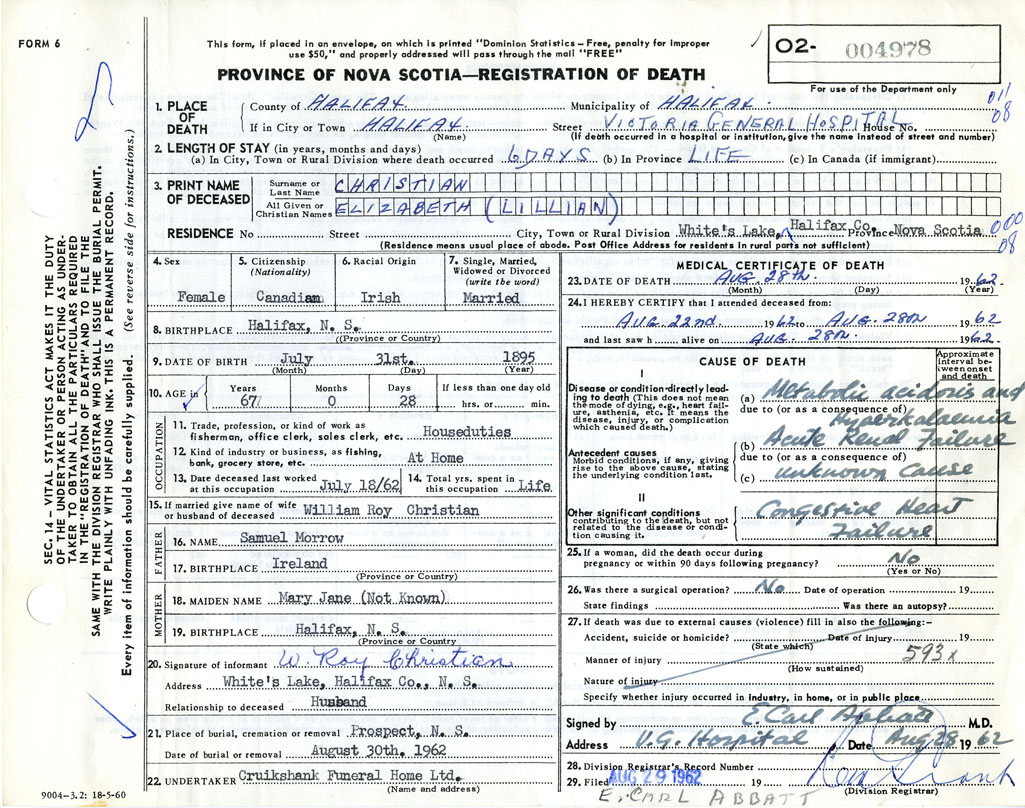 FORM 6
This form, if placed in an envelope, on which is printed "Dominion Statistics – Free, penalty for improper
use $50," and properly addressed will pass through the mail "FREE"
PROVINCE OF NOVA SCOTIA—REGISTRATION OF DEATH
O2- 004978
For use of the Department only
011
08
1. PLACE OF DEATH
County of HALIFAX Municipality of HALIFAX.
If in City or Town HALIFAX Street VICTORIA GENERAL HOSPITAL House No.
(Name) (If death occurred in a hospital or institution, give the name instead of street and number)
2. LENGTH OF STAY (in years, months and days)
(a) In City, Town or Rural Division where death occurred 6 DAYS (b) In Province LIFE (c) In Canada (if immigrant)
3. PRINT NAME OF DECEASED
Surname or Last Name CHRISTIAN
All Given or Christian Names ELIZABETH (LILLIAN)
RESIDENCE No Street City, Town or Rural Division White's Lake, Halifax Co. Province Nova Scotia
000
08
(Residence means usual place of abode. Post Office Address for residents in rural parts not sufficient)
4. Sex
Female
5. Citizenship
(Nationality)
Canadian
6. Racial Origin
Irish
7. Single, Married,
Widowed or Divorced
(write the word)
Married
8. BIRTHPLACE Halifax, N. S.
((Province or Country)
9. DATE OF BIRTH July 31st. 1895
(Month) (Day) (Year)
10. AGE in
Years Months Days If less than one day old
67 0 28 hrs. or min.
OCCUPATION
11. Trade, profession, or kind of work as
fisherman, office clerk, sales clerk, etc. Houseduties
12. Kind of industry or business, as fishing,
bank, grocery store, etc. At Home
13. Date deceased last worked
at this occupation July 18/62
14. Total yrs. spent in
this occupation Life
15. If married give name of wife
or husband of deceased William Roy Christian
FATHER
16. NAME Samuel Morrow
17. BIRTHPLACE Ireland
(Province or Country)
MOTHER
18. MAIDEN NAME Mary Jane (Not Known)
19. BIRTHPLACE Halifax, N. S.
(Province or Country
20. Signature of informant W. Roy Christian
Address White's Lake, Halifax Co., N. S.
Relationship to deceased Husband
21. Place of burial, cremation or removal Prospect, N. S.
Date of burial or removal August 30th. 1962
22. UNDERTAKER Cruikshank Funeral Home Ltd.
(Name and address)
MEDICAL CERTIFICATE OF DEATH
23. DATE OF DEATH AUG. 28th. 1962.
(Month) (Day) (Year)
24. I HEREBY CERTIFY that I attended deceased from:
AUG. 22nd. 1962 to AUG. 28th 1962
and last saw h alive on AUG. 28th. 1962.
CAUSE OF DEATH
Approximate
interval be-
tween onset
and death
I
Disease or condition directly lead-
ing to death (This does not mean
the mode of dying, e.g., heart fail-
ure, asthenia, etc. It means the
disease, injury, or complication
which caused death.)
(a) Metabolic acidosis and
due to (or as a consequence of)
Hyperkalaemia
Antecedent causes
Morbid conditions, if any, giving
rise to the above cause, stating
the underlying condition last.
(b) Acute Renal Failure
due to (or as a consequence of)
(c) unknown cause
II
Other significant conditions
contributing to the death, but not
related to the disease or condi-
tion causing it.
Congestive Heart
Failure
25. If a woman, did the death occur during
pregnancy or within 90 days following pregnancy? No
(Yes or No)
26. Was there a surgical operation? No Date of operation 19
State findings Was there an autopsy?
27. If death was due to external causes (violence) fill in also the following:–
Accident, suicide or homicide? Date of injury 19
(State which)
593x
Manner of injury
(How sustained)
Nature of injury
Specify whether injury occurred in industry, in home, or in public place
Signed by E. Carl Abbatt M.D.
Address V.G. Hospital Date Aug 28 1962
28. Division Registrar's Record Number
29. Filed AUG 29 1962 19
(Division Registrar)
E. CARL ABBATT
SEC. 14–VITAL STATISTICS ACT MAKES IT THE DUTY
OF THE UNDERTAKER OR PERSON ACTING AS UNDER-
TAKER TO OBTAIN ALL THE PARTICULARS REQUIRED
IN THE "REGISTRATION OF DEATH" AND TO FILE THE
SAME WITH THE DIVISION REGISTRAR WHO SHALL ISSUE THE BURIAL PERMIT.
WRITE PLAINLY WITH UNFADING INK–THIS IS A PERMANENT RECORD.
Every item of information should be carefully supplied. (See reverse side for instructions.)
9004–3.2: 18-5-60